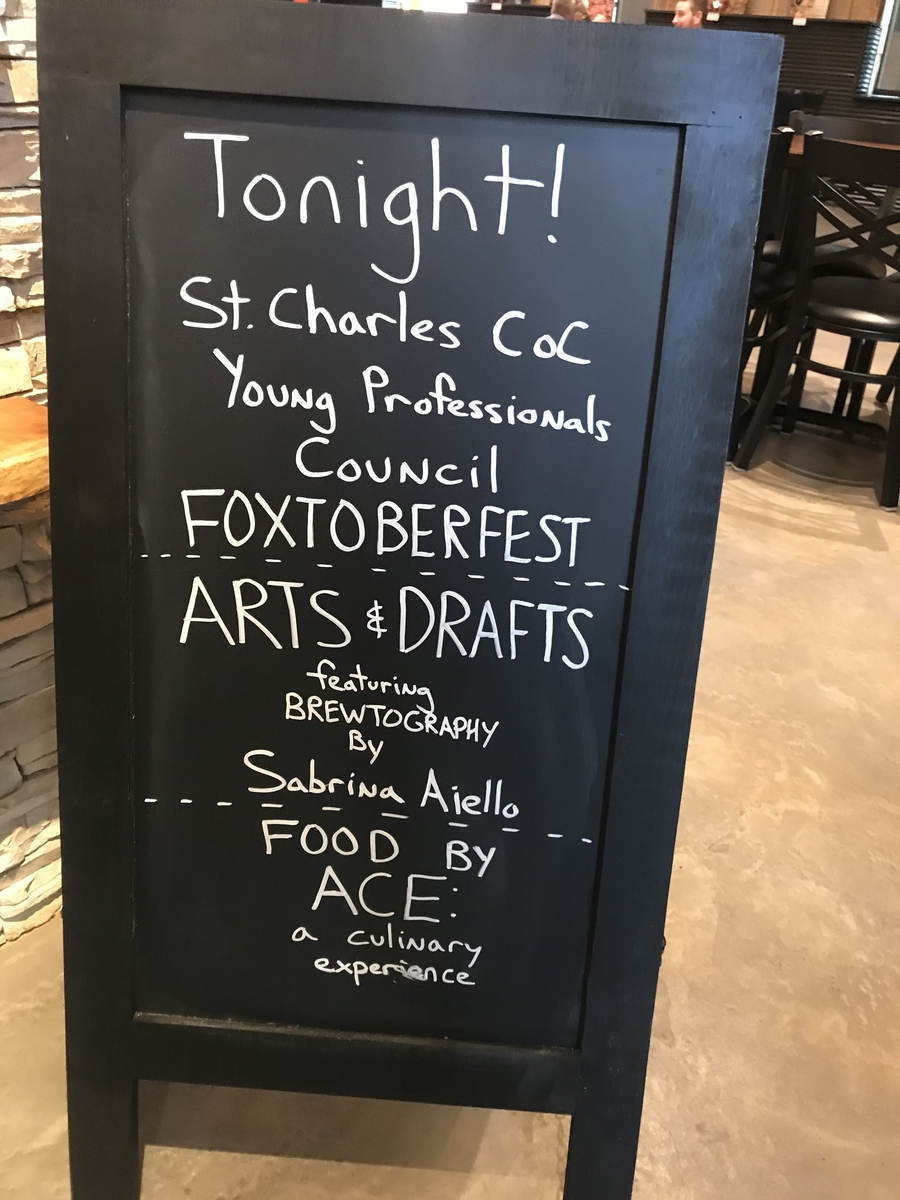 Tonight!
St. Charles CoC
Young Professionals
Council
FOXTOBERFEST
ARTS & DRAFTS
featuring
BREWTOGRAPHY
By
Sabrina Aiello
FOOD BY
ACE:
a culinary
experience